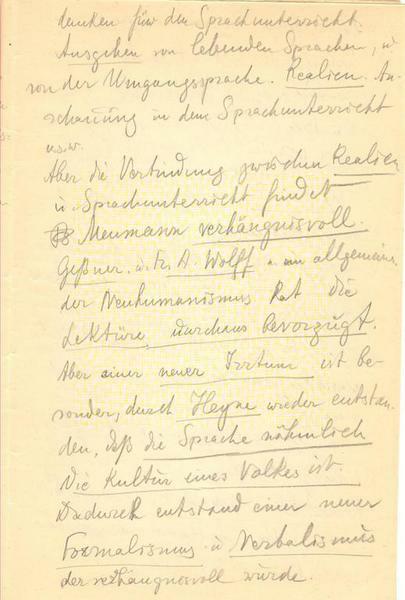 danken für den Sprachunterricht.
Ausgehen von lebenden Sprachen, u
von der Umgangssprache. Realien. An-
schauung in dem Sprachunterricht
usw.
Aber die Verbindung zwischen Realien
u Sprachunterricht findet
Meumann verhängnisvoll.
Geßner u Fr. A. Wolff u allgemein
der Neuhumanismus hat die
Lektüre durchaus bevorzugt.
Aber einer neuer Irrtum ist be-
sonder, durch Heyne wieder entstan-
den, daß die Sprache nähmlich
die Kultur eines Volkes ist.
Dadurch entstand einer neuer
Formalismus u Verbalismus
der verhängnosvoll würde.